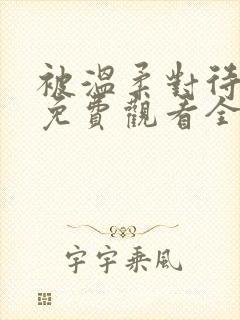 被溫柔對待
免費觀看全
宇宇乘風